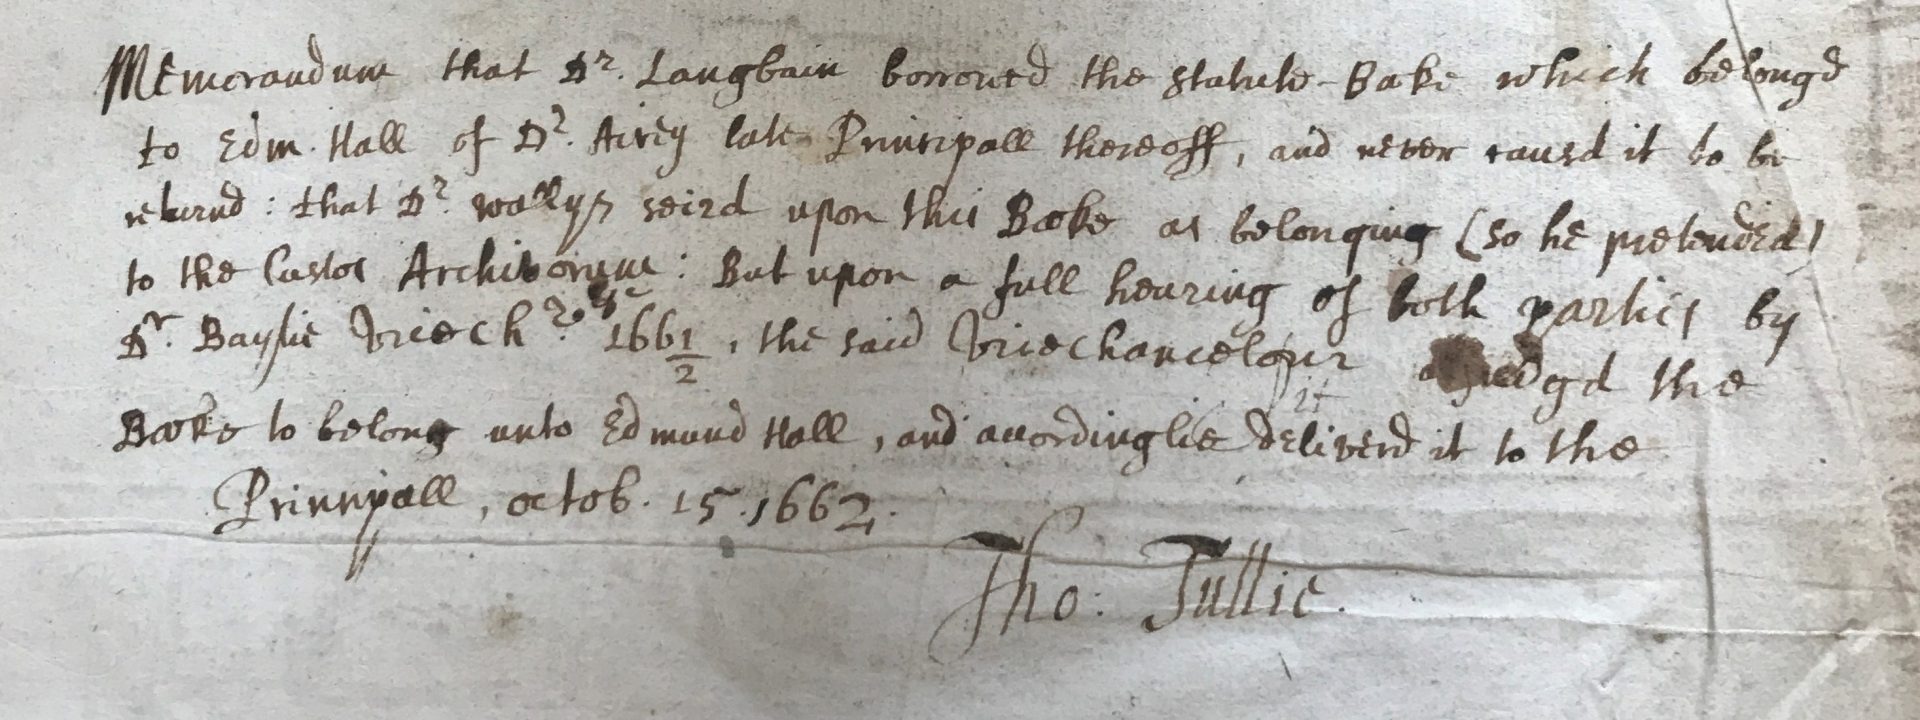 Memorandum that Dr. Langbain borrowed the statute-Booke which belongd
to Edm. Hall of Dr. Airey late Principall thereoff, and never causd it to be
returnd: that Dr. Wallys seizd upon this Booke as belonging (so he pretended)
to the Custos Archivorum: But upon a full hearing of both parties by
Dr. Baylie Vicech 1661/2, the said Vicechancelour adjudgd the
it
Booke to belong unto Edmund Hall, and accordinglie deliverd it to the
Principall, octob. 15. 1662.
Tho: Tullie.